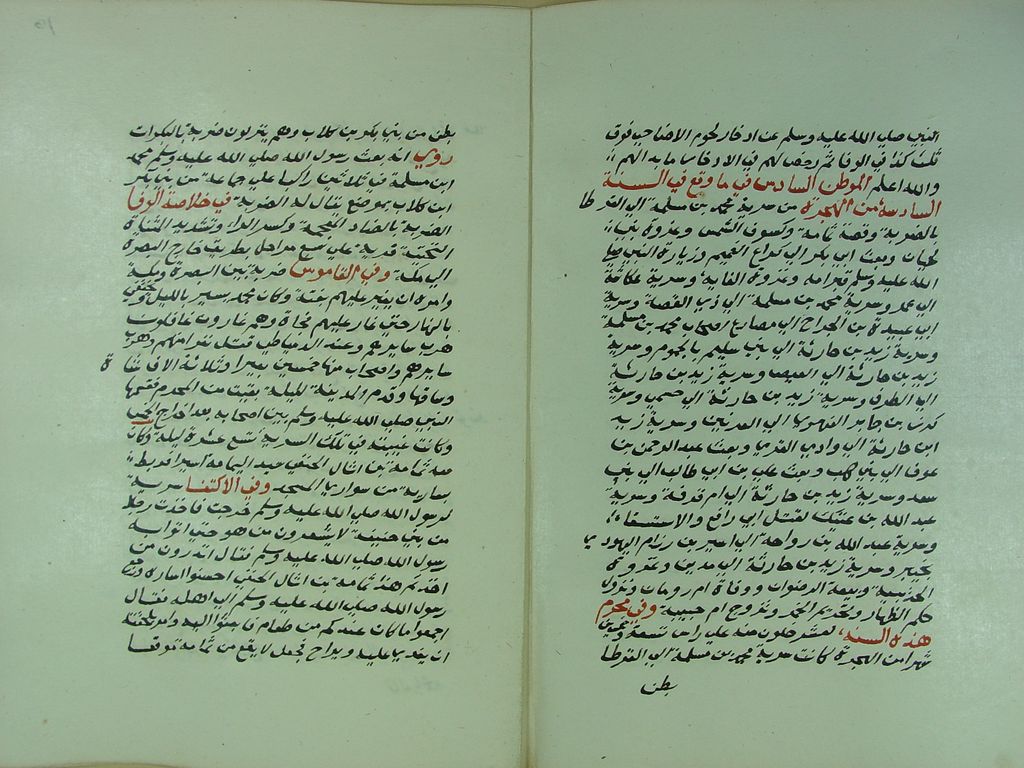 النبي صلى الله عليه وسلم عن ادخار لحوم الاضاحي فوق
ثلث كذا في الوفا ثم رخص لهم في الادخار ما بدا لهم
والله اعلم الموطن السادس في ما وقع في السنة
السادسة من الهجرة من سرية محمد بن مسلمة الى القرطا
بالضرية وقصة ثمامة وكسوف الشمس وغزوة بني
لحيان وبعث ابي بكر الى كراع الغميم وزيارة النبي صلى
الله عليه وسلم قبر امه وغزوة الغابة وسرية عكاشة
الى غمر وسرية محمد بن مسلمة الى ذي القصة وسرية
ابي عبيدة بن الجراح الى مصارع اصحاب محمد بن مسلمة
وسرية زيد بن حارثة الى بني سليم بالجموم وسرية
زيد بن حارثة الى العيص وسرية زيد بن حارثة
الى الطرف وسرية زيد بن حارثة الى حسمى وسرية
كرز بن جابر الفهري الى العرنيين وسرية زيد
ابن حارثة الى وادي القرى وبعث عبد الرحمن بن
عوف الى بني كلب وبعث علي بن ابي طالب الى بني
سعد وسرية زيد بن حارثة الى ام قرفة وسرية
عبد الله بن عتيك لقتل ابي رافع والاستسقاء
وسرية عبد الله بن رواحة الى اسير بن رزام اليهودي
بخيبر وسرية زيد بن حارثة الى مدين وغزوة
الحديبية وبيعة الرضوان ووفاة ام رومان ونزول
حكم الظهار وتحريم الخمر وتزوج ام حبيبة وفي محرم
هذه السنة لعشر خلون منه على راس تسعة وخمسين
شهرا من الهجرة كانت سرية محمد بن مسلمة الى القرطا
بطن
بطن من بني بكر بن كلاب وهم ينزلون ضرية بالبكرات
روي انه بعث رسول الله صلى الله عليه وسلم محمد
ابن مسلمة في ثلاثين راكبا على جماعة من بني بكر
ابن كلاب بموضع يقال له الضرية في خلاصة الوفا
الضرية بالضاد المعجمة وكسر الراء وتشديد المثناة
التحتية قرية على سبع مراحل بطريق حاج البصرة
الى مكة وفي القاموس ضرية بين البصرة ومكة
وامره ان يغير عليهم بغتة وكان محمد يسير بالليل ويختفي
بالنهار حتى غار عليهم فجاة وهم غارون غافلون
هرب سايرهم وعند الدمياطي قتل نفرا منهم وهرب
سايرهم واصحاب منها خمسين بعيرا وثلاثة الاف شاة
وساقها وقدم المدينة لليلة بقيت من المحرم فقسمها
النبي صلى الله عليه وسلم بين اصحابه بعد اخراج الخمس
وكانت غيبته في تلك السرية تسع عشرة ليلة وكان
معه ثمامة بن اثال الحنفي سيد اليمامة اسيرا فربط
بسارية من سواري المسجد وفي الاكتفا سرية
لرسول الله صلى الله عليه وسلم خرجت فاخذت رجلا
من بني حنيفة لا يشعرون من هو حتى اتوا به
رسول الله صلى الله عليه وسلم فقال اتدرون من
اخذتم هذا ثمامة بن اثال الحنفي احسنوا اساره ورجع
رسول الله صلى الله عليه وسلم الى اهله فقال
اجمعوا ما كان عندكم من طعام فابعثوا اليه وامر بلقحته
ان يغدى عليه ويراح فجعل لا يقع من ثمامة موقعا